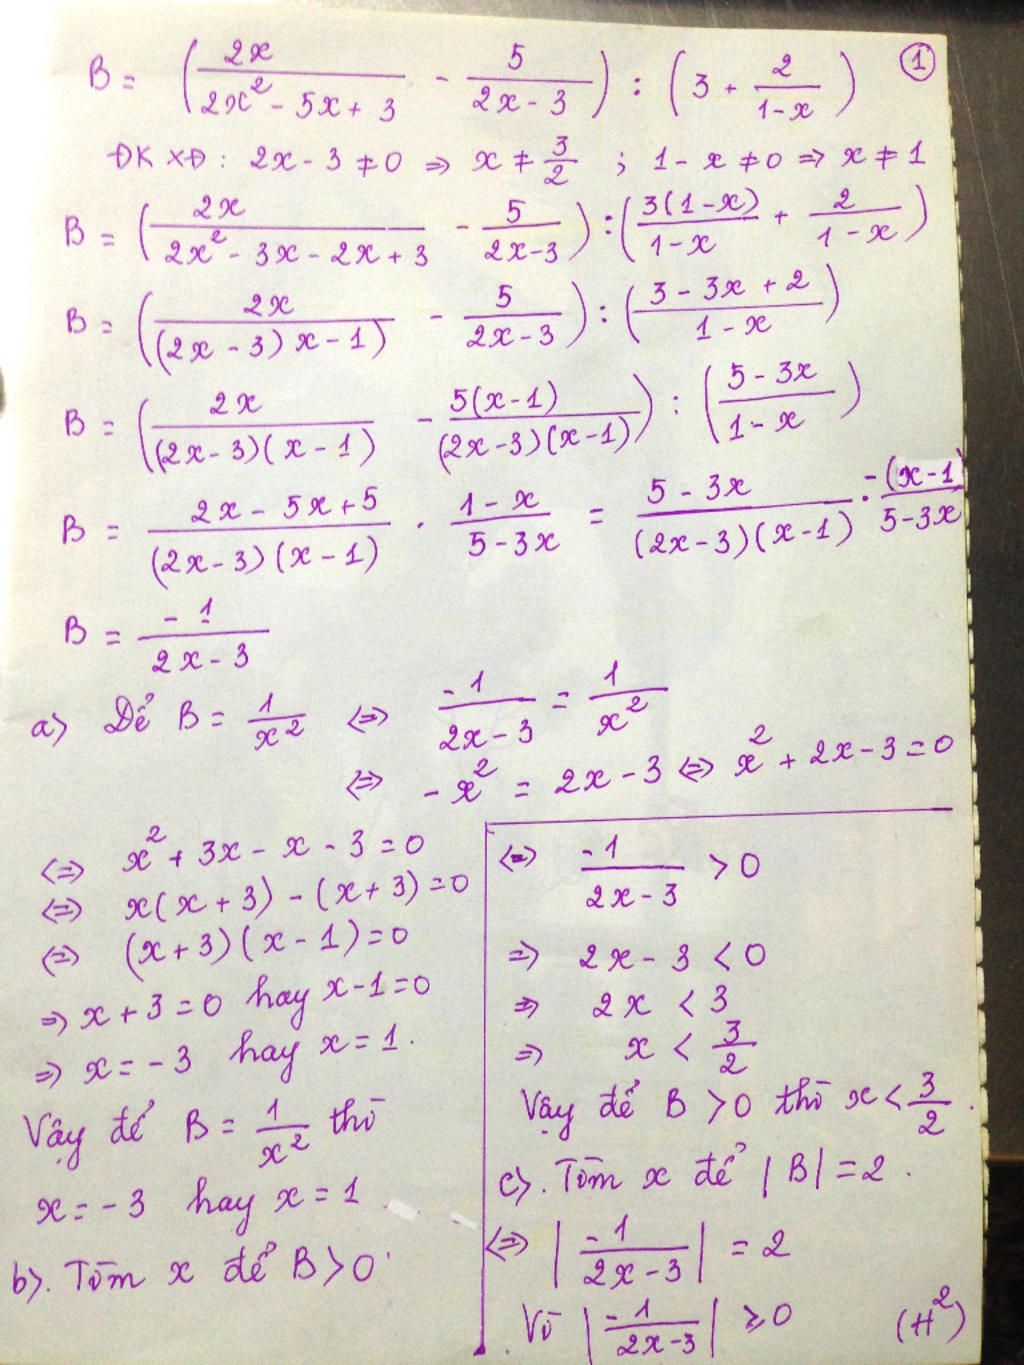 ①
B = (2x/(2x² - 5x + 3) - 5/(2x - 3)) : (3 + 2/(1-x))
ĐKXĐ: 2x - 3 ≠ 0 => x ≠ 3/2 ; 1 - x ≠ 0 => x ≠ 1
B = (2x/(2x² - 3x - 2x + 3) - 5/(2x-3)) : (3(1-x)/(1-x) + 2/(1-x))
B = (2x/((2x - 3) x - 1) - 5/(2x-3)) : ((3 - 3x + 2)/(1-x))
B = (2x/((2x-3)(x-1)) - 5(x-1)/((2x-3)(x-1))) : ((5-3x)/(1-x))
B = (2x - 5x + 5)/((2x-3)(x-1)) · (1-x)/(5-3x) = (5-3x)/((2x-3)(x-1)) · -(x-1)/(5-3x)
B = -1/(2x-3)
a) Để B = 1/x² <=> -1/(2x-3) = 1/x²
<=> -x² = 2x - 3 <=> x² + 2x - 3 = 0
<=> x² + 3x - x - 3 = 0
<=> x(x+3) - (x+3) = 0
<=> (x+3)(x-1) = 0
=> x + 3 = 0 hay x-1=0
=> x = -3 hay x = 1.
Vậy để B = 1/x² thì
x = -3 hay x = 1
b). Tìm x để B > 0
<=> -1/(2x-3) > 0
=> 2x - 3 < 0
=> 2x < 3
=> x < 3/2
Vậy để B > 0 thì x < 3/2.
c). Tìm x để |B| = 2.
<=> |-1/(2x-3)| = 2
Vì |-1/(2x-3)| ≥ 0 (H²)